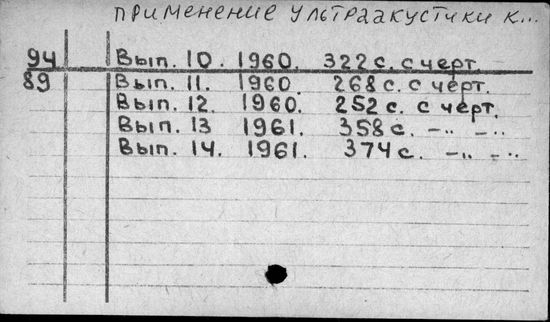 применение ультраакустики к...
94 Вып. 10. 1960. 322 с. с черт.
89 Вып. 11. 1960. 268 с. с черт.
Вып. 12. 1960. 252 с. с черт.
Вып. 13 1961. 358 с. -„- -„-
Вып. 14. 1961. 374 с. -„- -„-